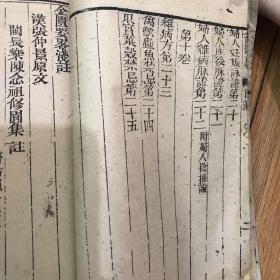 婦人妊娠病脉證第二十
婦人產後病脉證第二十一
婦人雜病脉證第二十二 附婦人陰挺論
第十卷
雜病方第二十三
禽獸蟲魚禁忌第二十四
果實菜穀禁忌第二十五
金匱要畧淺註
漢張仲景原文
閩長樂陳念祖修園集註